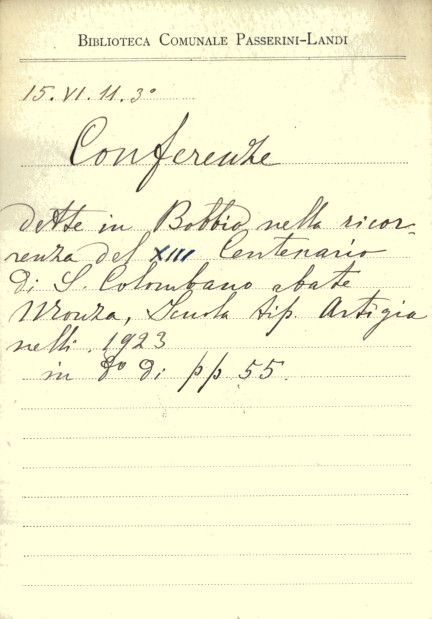 BIBLIOTECA COMUNALE PASSERINI-LANDI
15.VI.11.3°
Conferenze
dette in Bobbio nella ricor-
renza del XIII Centenario
di S. Colombano abate
Monza, Scuola tip. Artigia
nelli. 1923
in 8° di pp. 55.